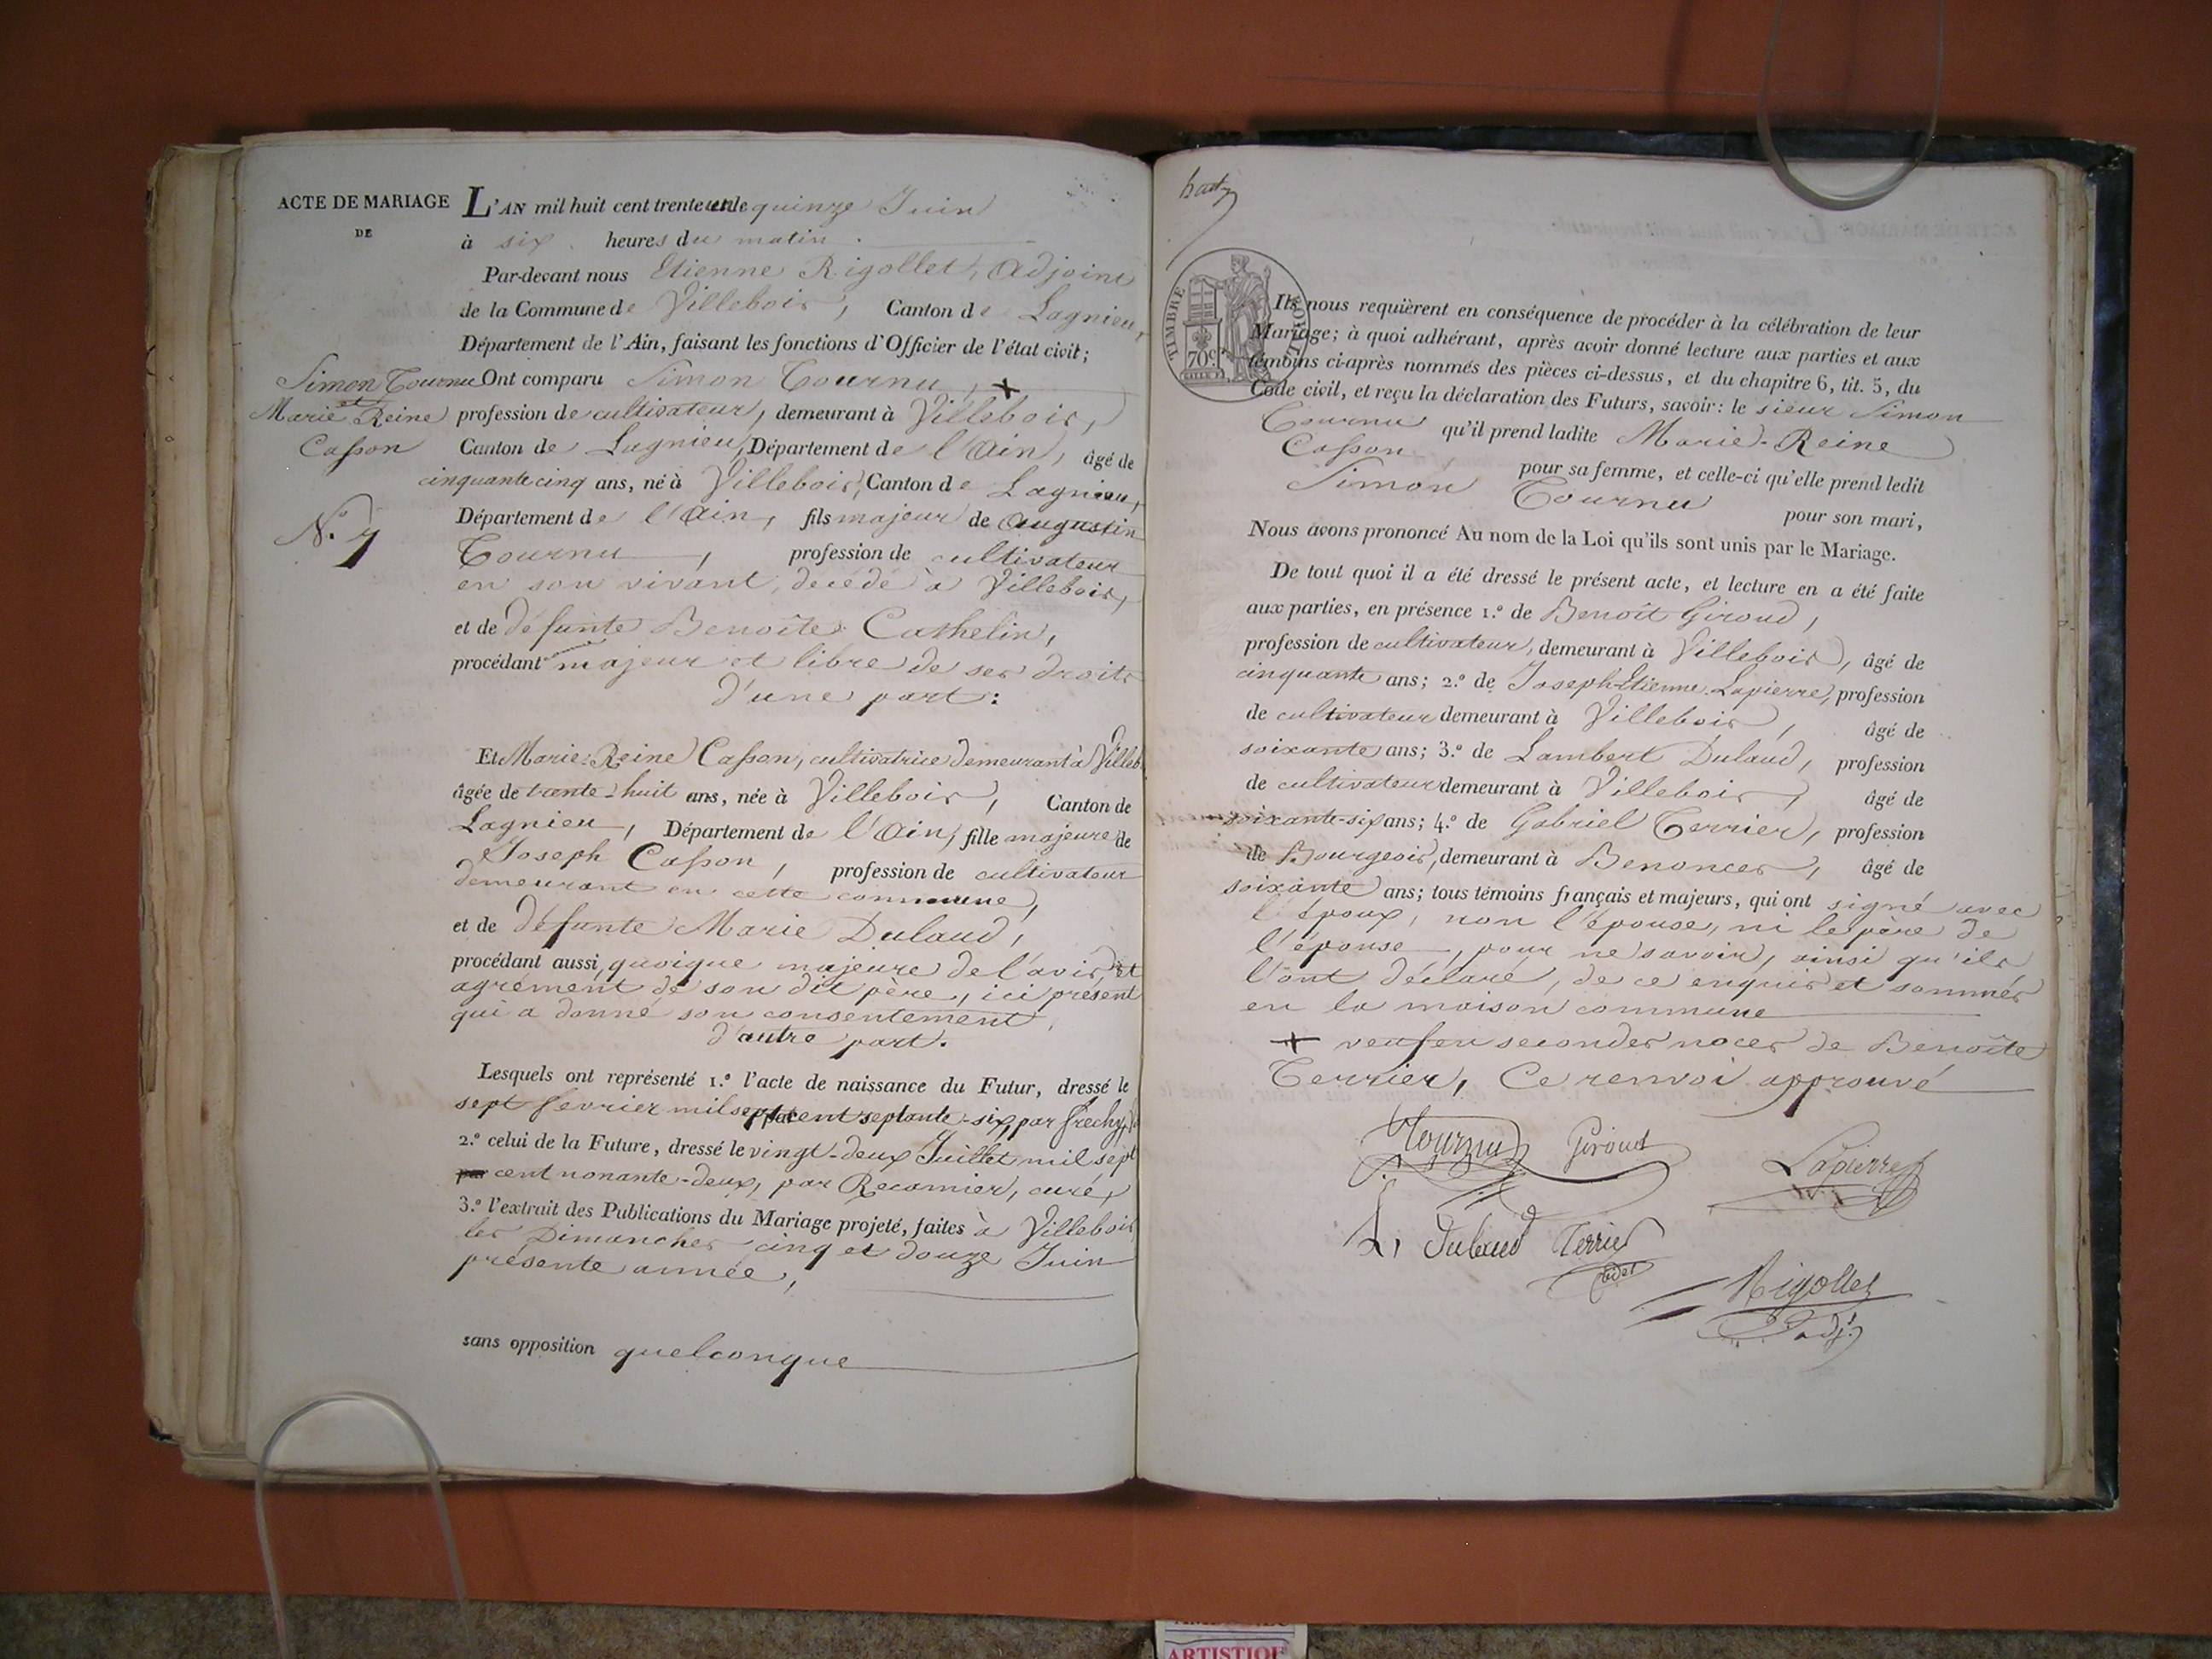 ACTE DE MARIAGE
DE
Simon Tournu
et
Marie Reine
Casson
N.° 7
L'AN mil huit cent trente un le quinze Juin
à six heures du matin.
Par-devant nous Etienne Rigollet, Adjoint
de la Commune de Villebois, Canton de Lagnieu,
Département de l'Ain, faisant les fonctions d'Officier de l'état civil;
Ont comparu Simon Tournu, +
profession de cultivateur, demeurant à Villebois,
Canton de Lagnieu, Département de l'Ain, âgé de
cinquante cinq ans, né à Villebois, Canton de Lagnieu,
Département de l'Ain, fils majeur de Augustin
Tournu, profession de cultivateur
en son vivant, décédé à Villebois,
et de défunte Benoîte Cathelin,
procédant majeur et libre de ses droits
d'une part:
Et Marie Reine Casson, cultivatrice demeurant à Villeb
âgée de trente-huit ans, née à Villebois, Canton de
Lagnieu, Département de l'Ain, fille majeure de
Joseph Casson, profession de cultivateur
demeurant en cette commune,
et de défunte Marie Dulaud,
procédant aussi, quoique majeure de l'avis et
agrément de son dit père, ici présent
qui a donné son consentement,
d'autre part.
Lesquels ont représenté 1.° l'acte de naissance du Futur, dressé le
sept fevrier mil sept cent septante-six, par frechy,
2.° celui de la Future, dressé le vingt-deux Juillet mil sept
cent nonante-deux, par Recamier, curé,
3.° l'extrait des Publications du Mariage projeté, faites à Villebois
les Dimanches cinq et douze Juin
présente année,
sans opposition quelconque
TIMBRE ROYAL
70 c.
Ils nous requièrent en conséquence de procéder à la célébration de leur
Mariage; à quoi adhérant, après avoir donné lecture aux parties et aux
témoins ci-après nommés des pièces ci-dessus, et du chapitre 6, tit. 5, du
Code civil, et reçu la déclaration des Futurs, savoir: le sieur Simon
Tournu qu'il prend ladite Marie-Reine
Casson pour sa femme, et celle-ci qu'elle prend ledit
Simon Tournu pour son mari,
Nous avons prononcé Au nom de la Loi qu'ils sont unis par le Mariage.
De tout quoi il a été dressé le présent acte, et lecture en a été faite
aux parties, en présence 1.° de Benoît Giroud,
profession de cultivateur, demeurant à Villebois, âgé de
cinquante ans; 2.° de Joseph-Etienne Lapierre, profession
de cultivateur demeurant à Villebois, âgé de
soixante ans; 3.° de Lambert Dulaud, profession
de cultivateur demeurant à Villebois, âgé de
soixante-six ans; 4.° de Gabriel Terrier, profession
de Bourgeois, demeurant à Benonces, âgé de
soixante ans; tous témoins français et majeurs, qui ont signé avec
l'époux, non l'épouse, ni le père de
l'épouse, pour ne savoir, ainsi qu'ils
l'ont déclaré, de ce enquis et sommés
en la maison commune
+ veuf en secondes noces de Benoîte
Terrier, Ce renvoi approuvé
Tournu Giroud Lapierre
L. Dulaud Terrier
cadet
Rigollet
adj.
ARTISTIQUE